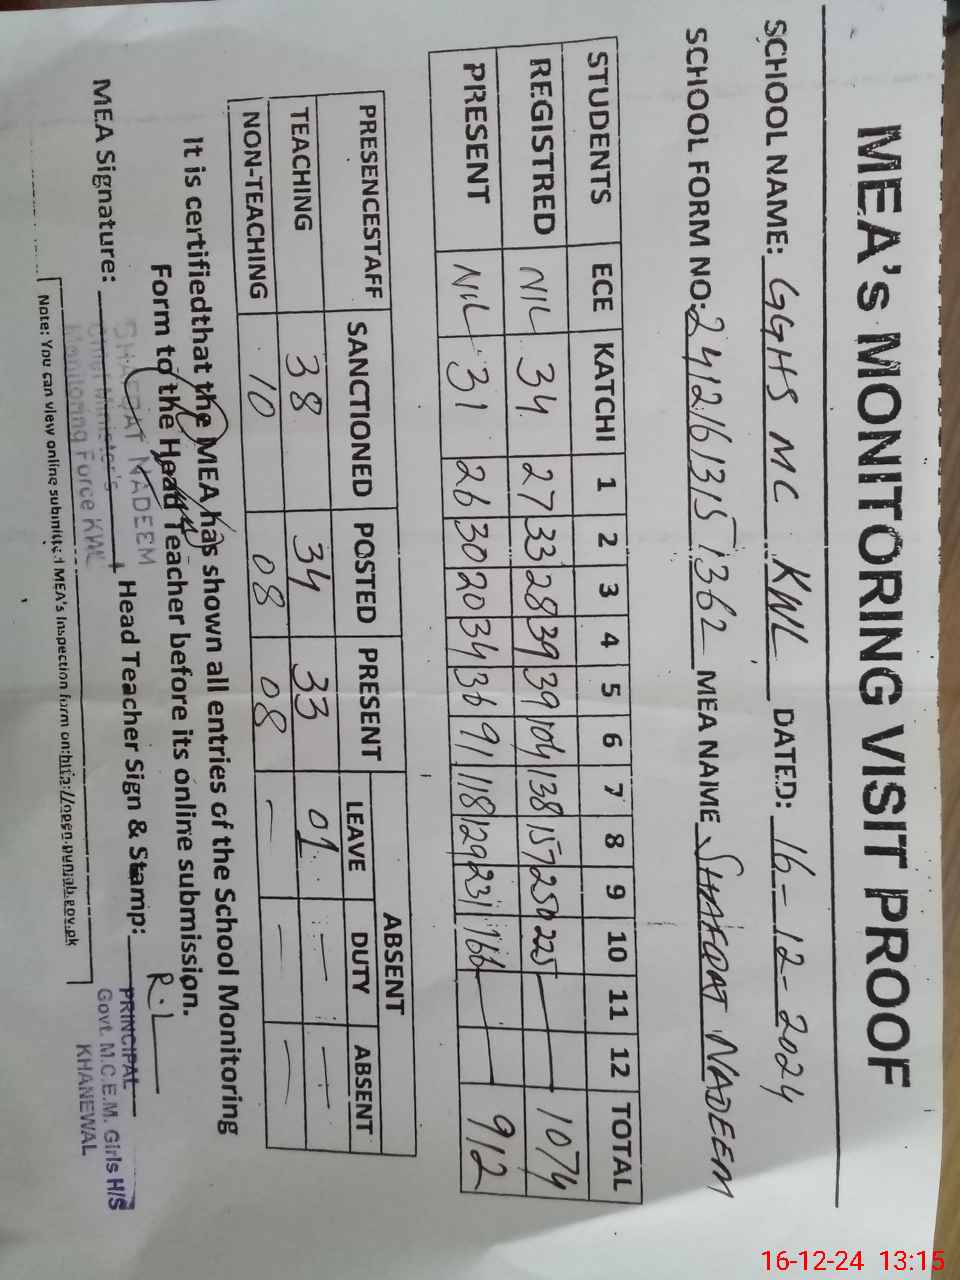 MEA's MONITORING VISIT PROOF
SCHOOL NAME: GGHS MC KWL DATED: 16-12-2024
SCHOOL FORM NO: 2412161315 1362 MEA NAME SHAFQAT NADEEM
STUDENTS ECE KATCHI 1 2 3 4 5 6 7 8 9 10 11 12 TOTAL
REGISTRED NIL 34 27 33 28 39 39 104 138 157 250 225 — — 1074
PRESENT NIL 31 26 30 20 34 36 91 118 129 231 166 — — 912
PRESENCESTAFF SANCTIONED POSTED PRESENT ABSENT
LEAVE DUTY ABSENT
TEACHING 38 34 33 01 — —
NON-TEACHING 10 08 08 — — —
It is certifiedthat the MEA has shown all entries of the School Monitoring
Form to the Head Teacher before its online submission.
R.L
MEA Signature: Head Teacher Sign & Stamp:
SHAFQAT NADEEM
Chief Minister's
Monitoring Force KWL
PRINCIPAL
Govt. M.C.E.M. Girls H/S
KHANEWAL
Note: You can view online submitted MEA's Inspection form on:http://open.punjab.gov.pk
16-12-24 13:15